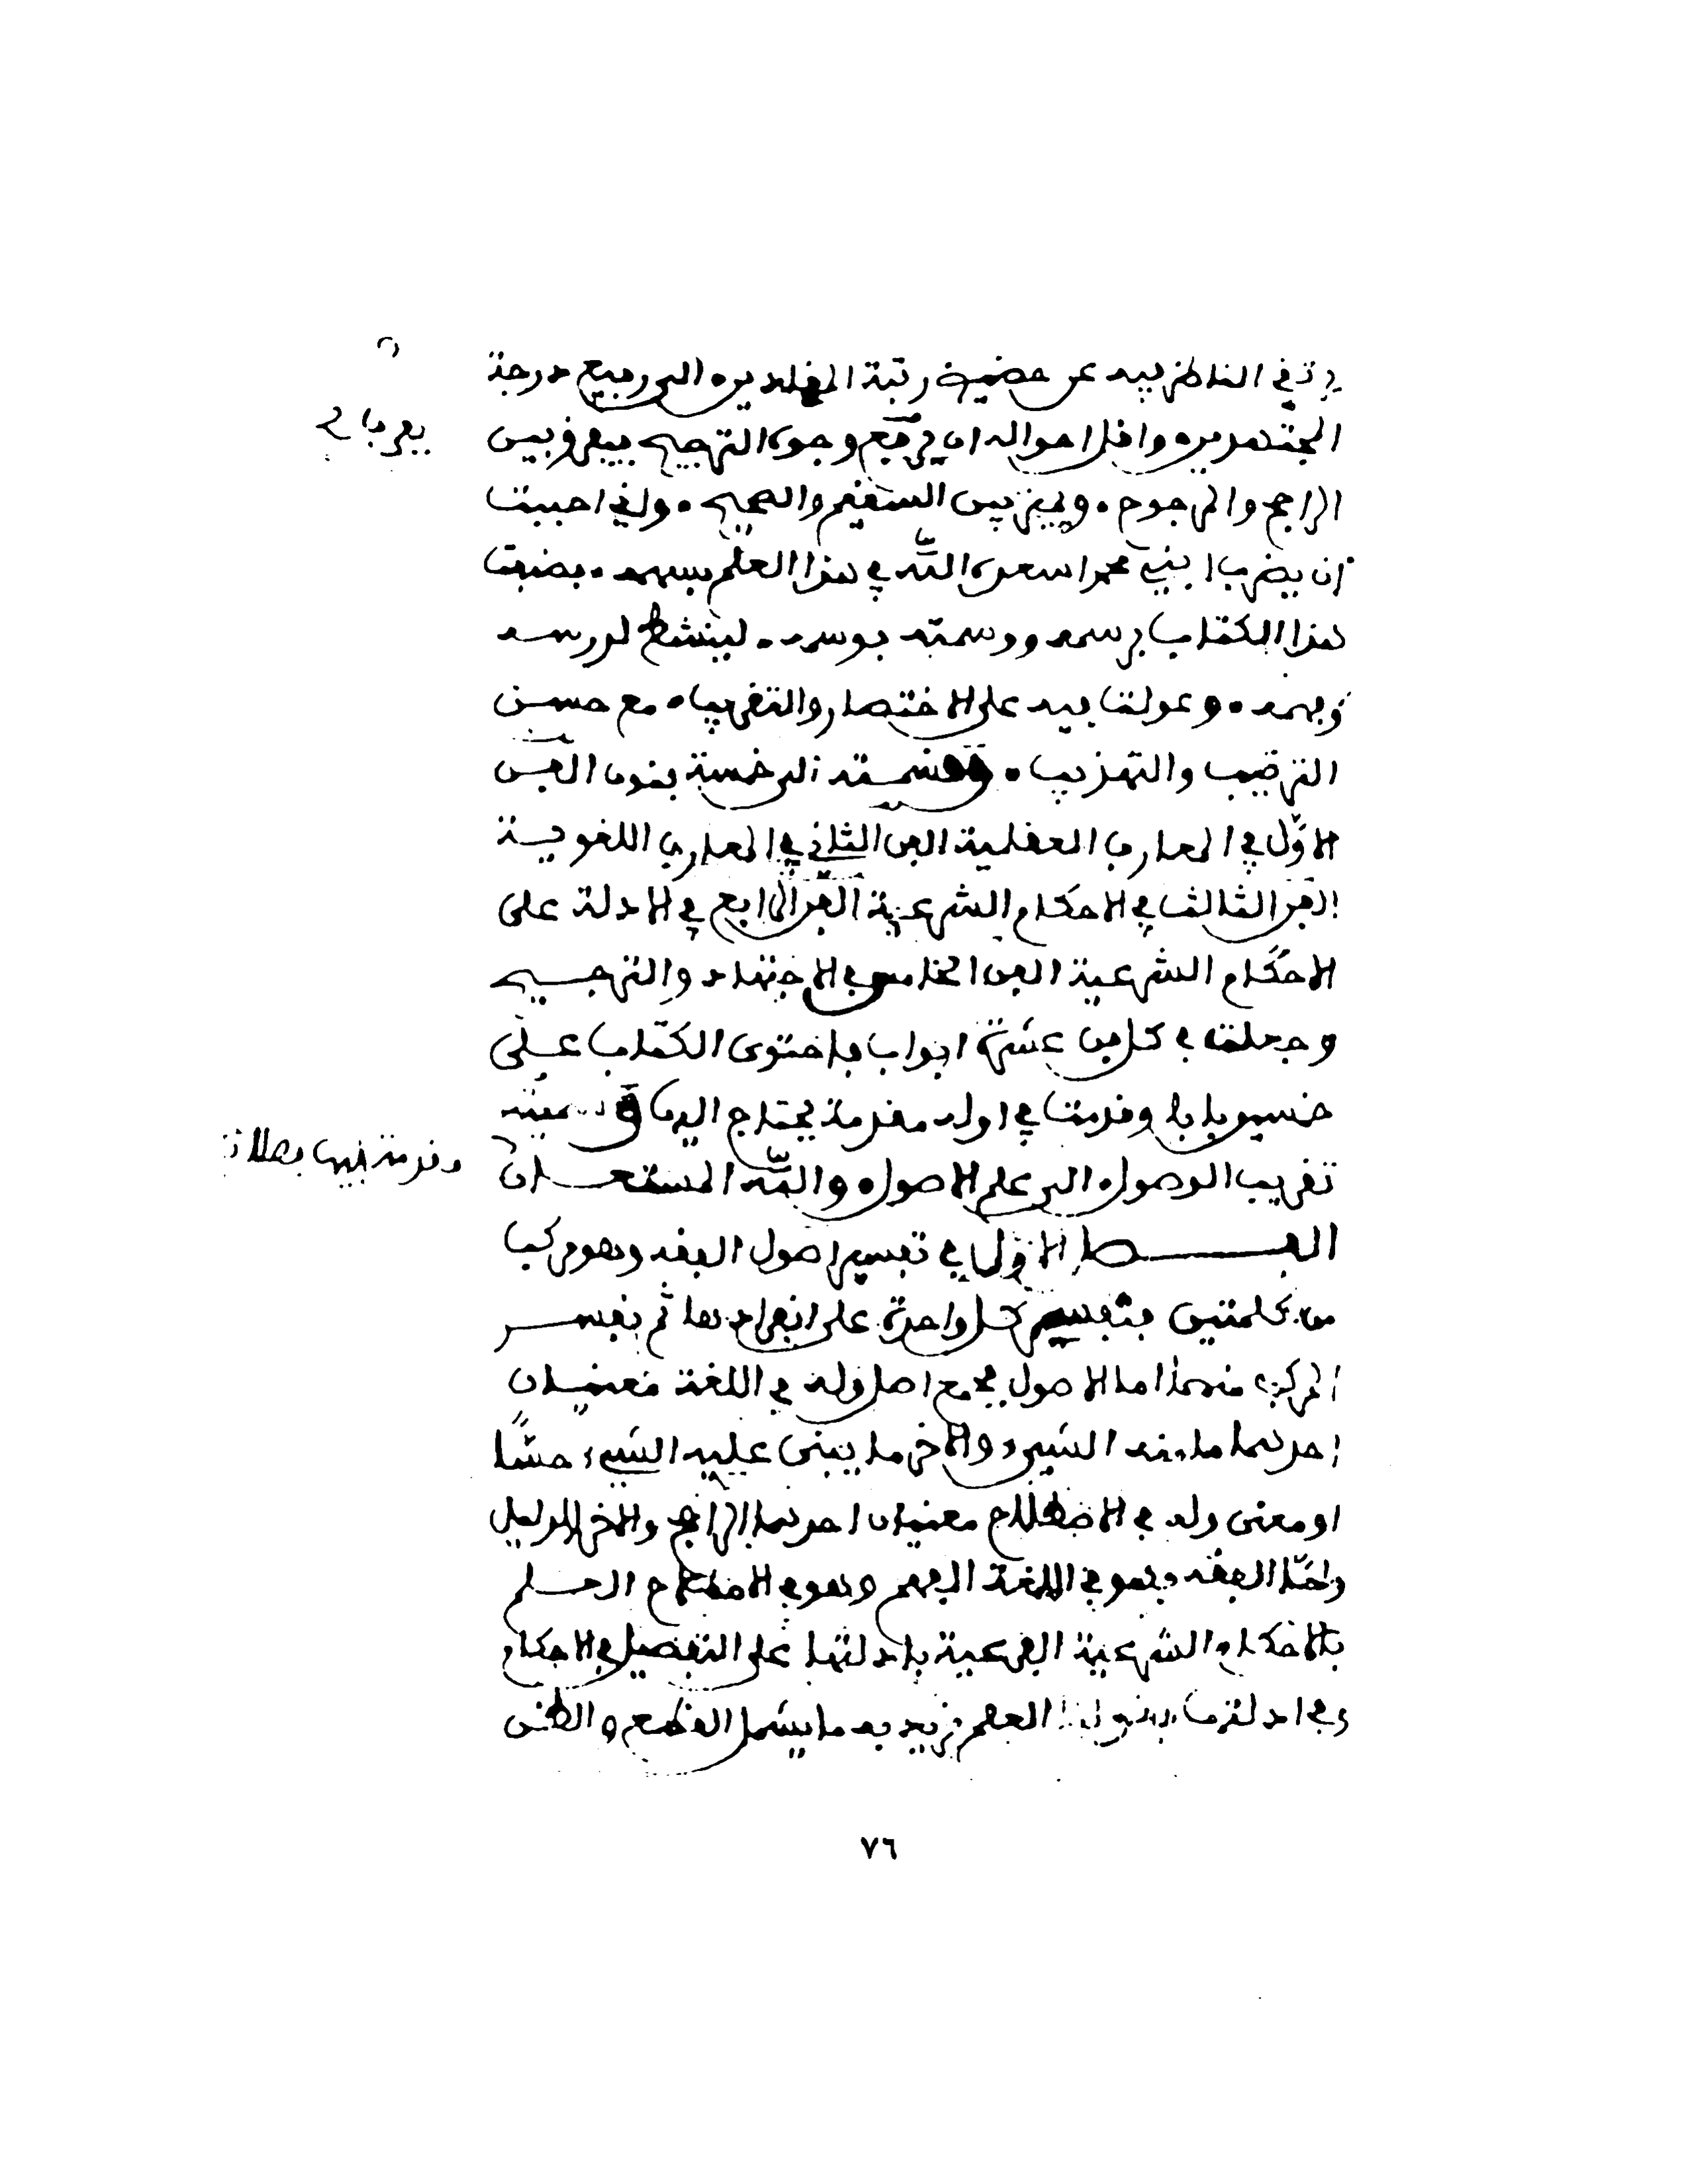 يرتقي الناظر فيه عن حضيض رتبة المقلدين الى رفيع درجة
المجتهدين واقل احواله ان يعرف وجوه الترجيح فيفرق بين
الراجح والمرجوح ويميز بين السقيم والصحيح واني احببت
ان يضرب ابني محمد اسعده الله في هذا العلم بسهم فصنفت
هذا الكتاب برسمه ووسمته بوسمه لينشط لدرسه
وفهمه وعولت فيه على الاختصار والتقريب مع حسن
الترتيب والتهذيب وقسمته الى خمسة فنون الفن
الاول في المعارف العقلية الفن الثاني في المعارف اللغوية
الفن الثالث في الاحكام الشرعية الفن الرابع في الادلة على
الاحكام الشرعية الفن الخامس في الاجتهاد والترجيح
وجعلت في كل فن عشرة ابواب فاحتوى الكتاب على
خمسين بابا وقدمت في اوله مقدمة يحتاج اليها وسميته
تقريب الوصول الى علم الاصول والله المستعان
الفصل الاول في تفسير اصول الفقه وهو مركب
من كلمتين فتفسير كل واحدة على انفرادها ثم نفسر
المركب منهما اما الاصول فجمع اصل وله في اللغة معنيان
احدهما ما منه الشيء والاخر ما يبنى عليه الشيء حسا
او معنى وله في الاصطلاح معنيان احدهما الراجح والاخر الدليل
واما الفقه فهو في اللغة الفهم وهو في الاصطلاح العلم
بالاحكام الشرعية الفرعية بادلتها على التفصيل في الاحكام
وفي ادلتها فقولنا العلم نريد به ما يشمل القطع والظن
وقدمة فيها
٧٦